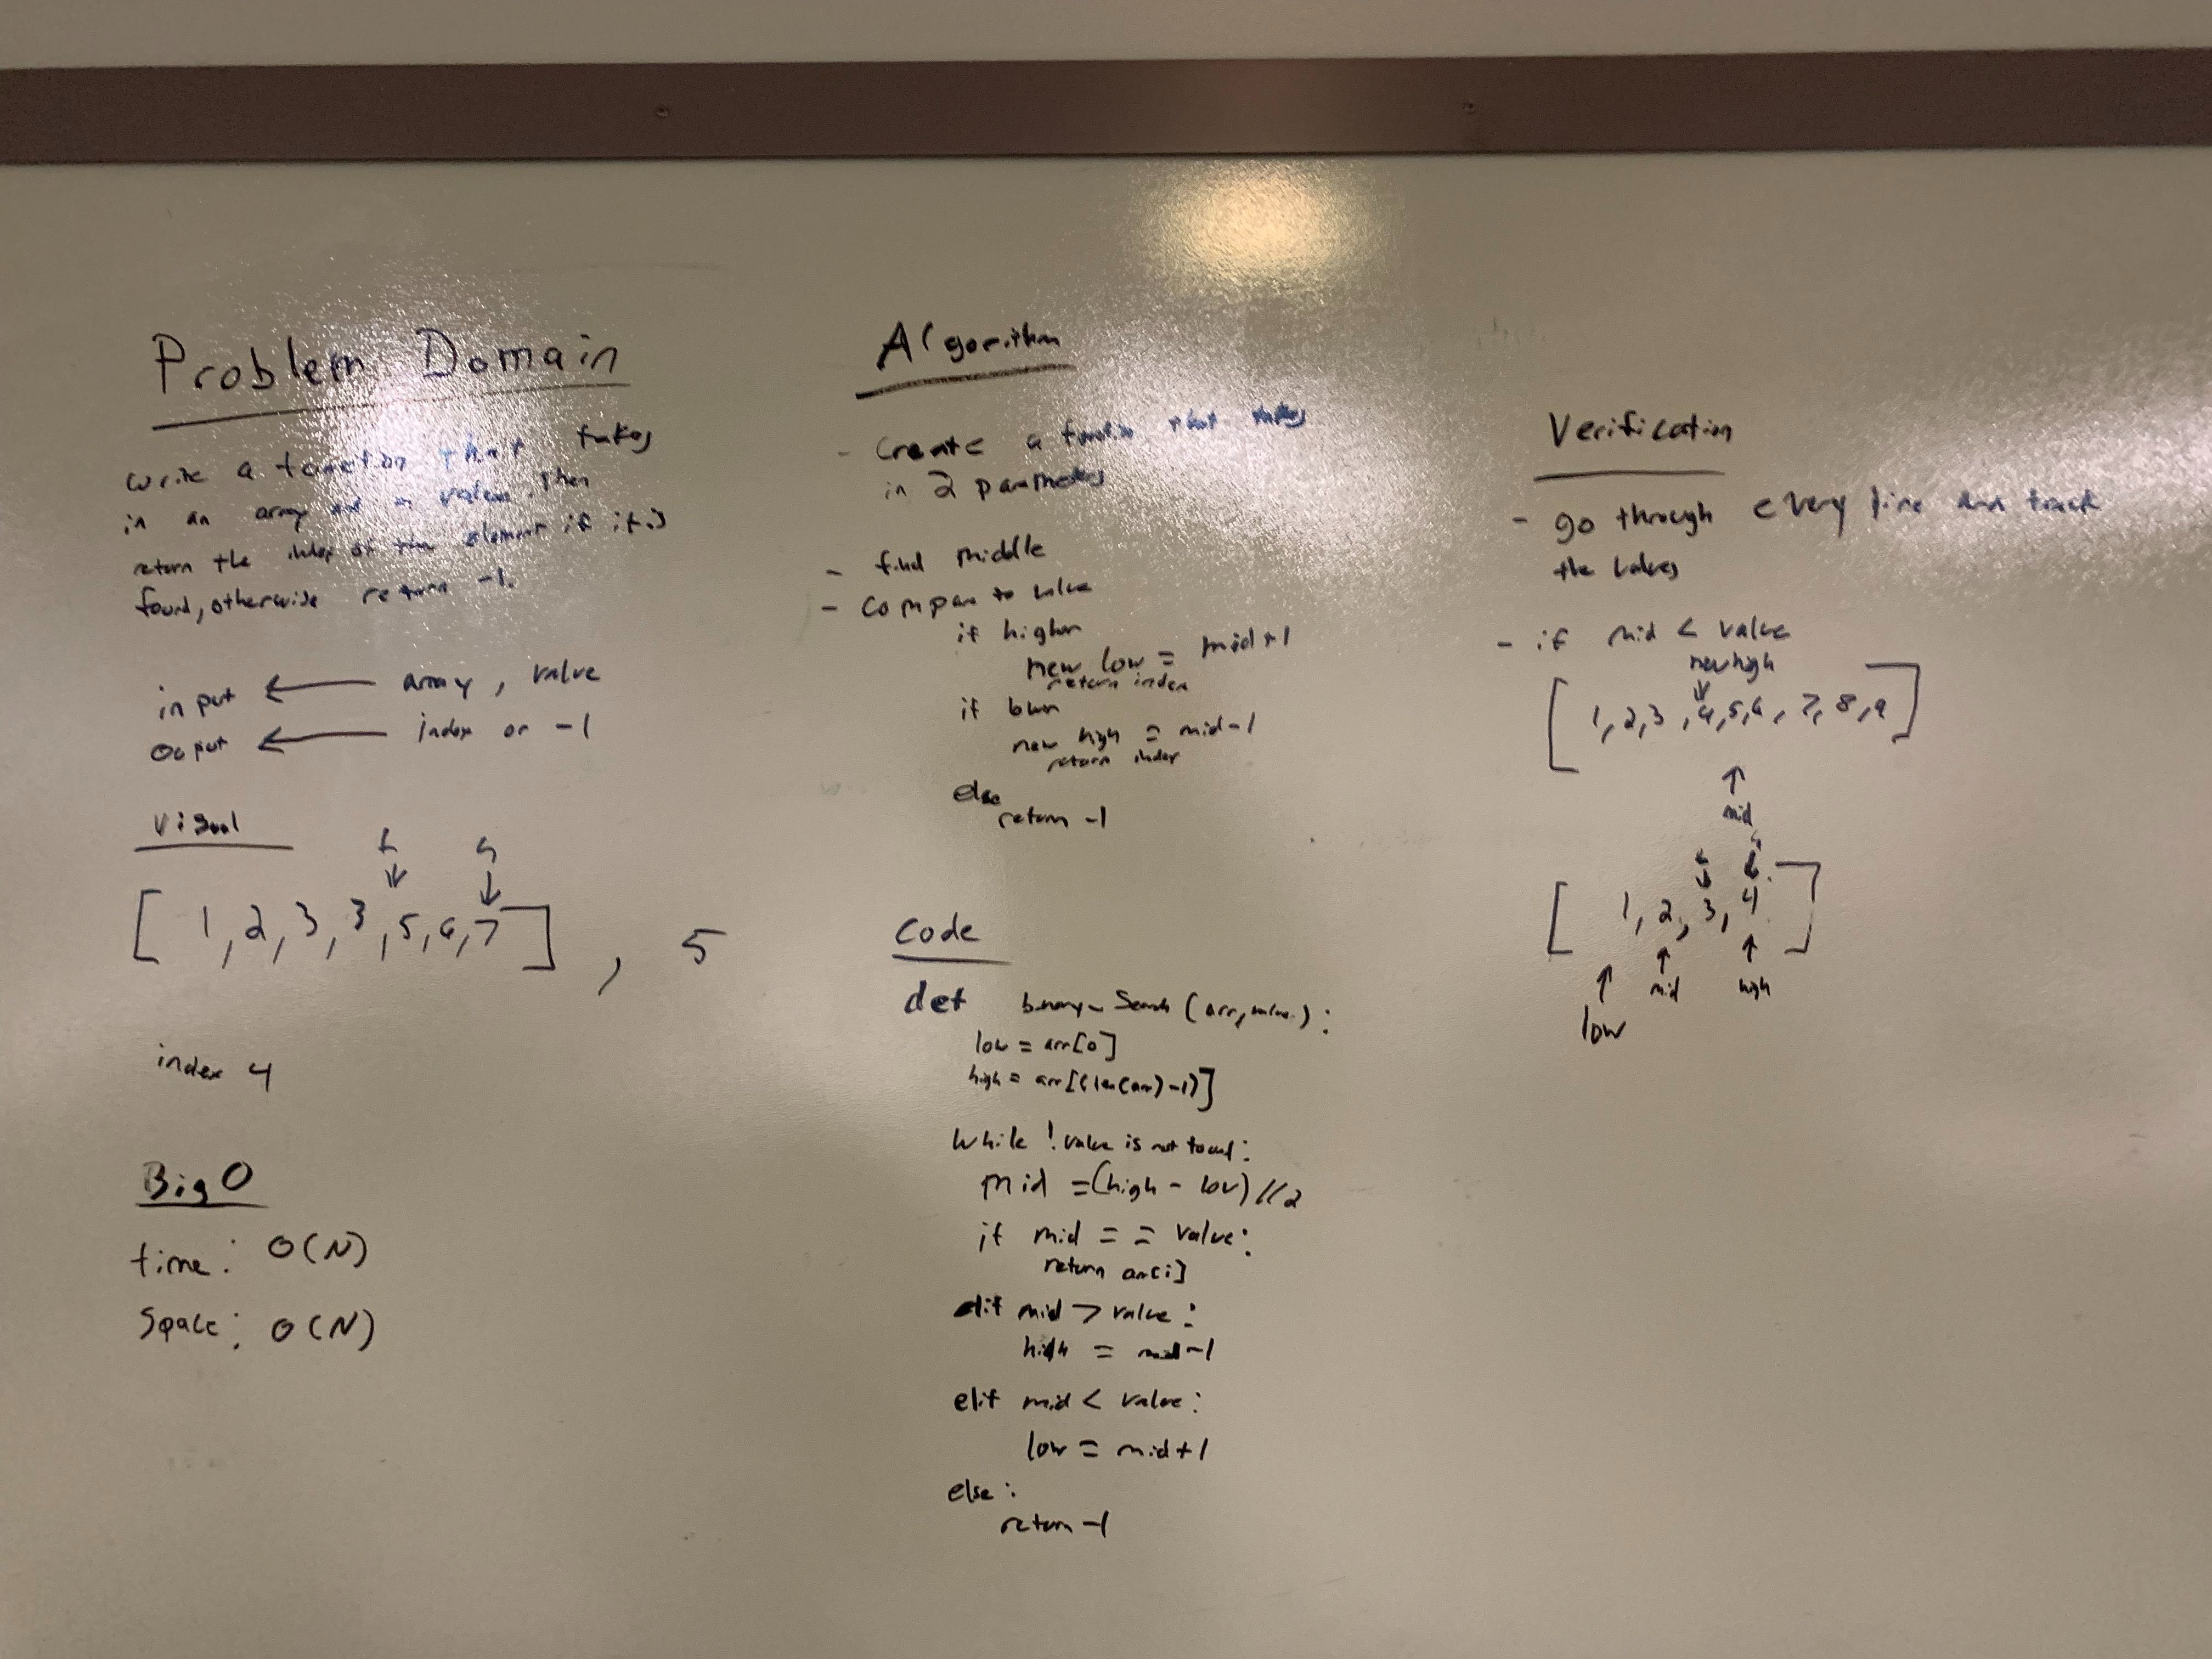 Problem Domain
write a function that takes
in an array and a value. Then
return the index of the element if it is
found, otherwise return -1.
input ← array, value
ouput ← index or -1
Visual
[ 1, 2, 3, 3, 5, 6, 7 ], 5
index 4
Big O
time: O(N)
Space: O(N)
Algorithm
- Create a function that takes
in 2 parameters
- find middle
- compare to value
if higher
new low = mid+1
return index
if lower
new high = mid-1
return index
else
return -1
Code
def binary_Search (arr, value):
low = arr[0]
high = arr[(len(arr)-1)]
while !value is not found:
mid = (high - low)//2
if mid == value:
return arr[i]
elif mid > value:
high = mid-1
elif mid < value:
low = mid+1
else:
return -1
Verification
- go through every line and track
the values
- if mid < value
new high
[ 1, 2, 3, 4, 5, 6, 7, 8, 9 ]
mid
[ 1, 2, 3, 4 ]
mid high
low